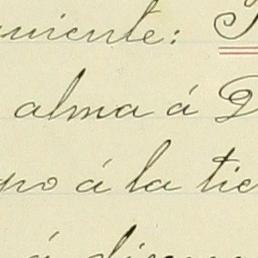 guiente:
alma á D
po á la tie
á